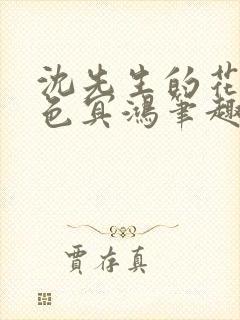 沈先生的花
色冥鴻筆趣
賈存真